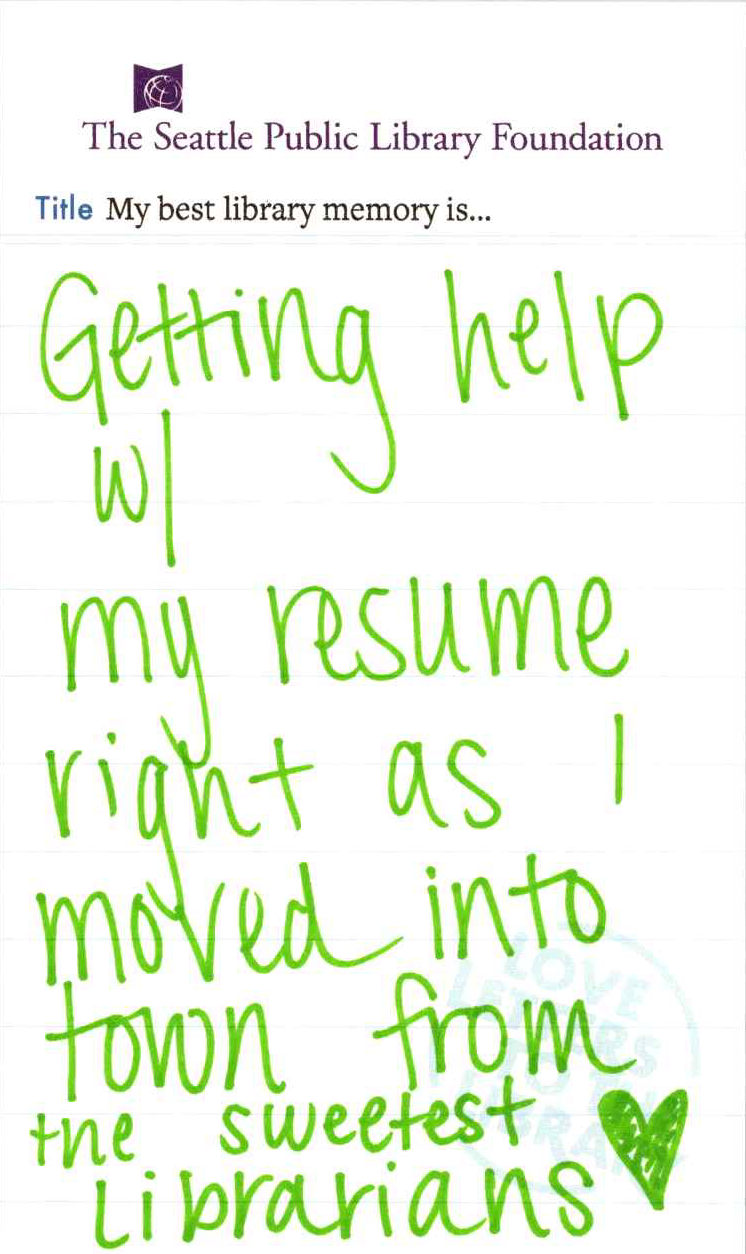 The Seattle Public Library Foundation
Title My best library memory is...
Getting help
w/
my resume
right as I
moved into
town from
the sweetest
Librarians
LOVE
LETTERS
TO THE
LIBRARY